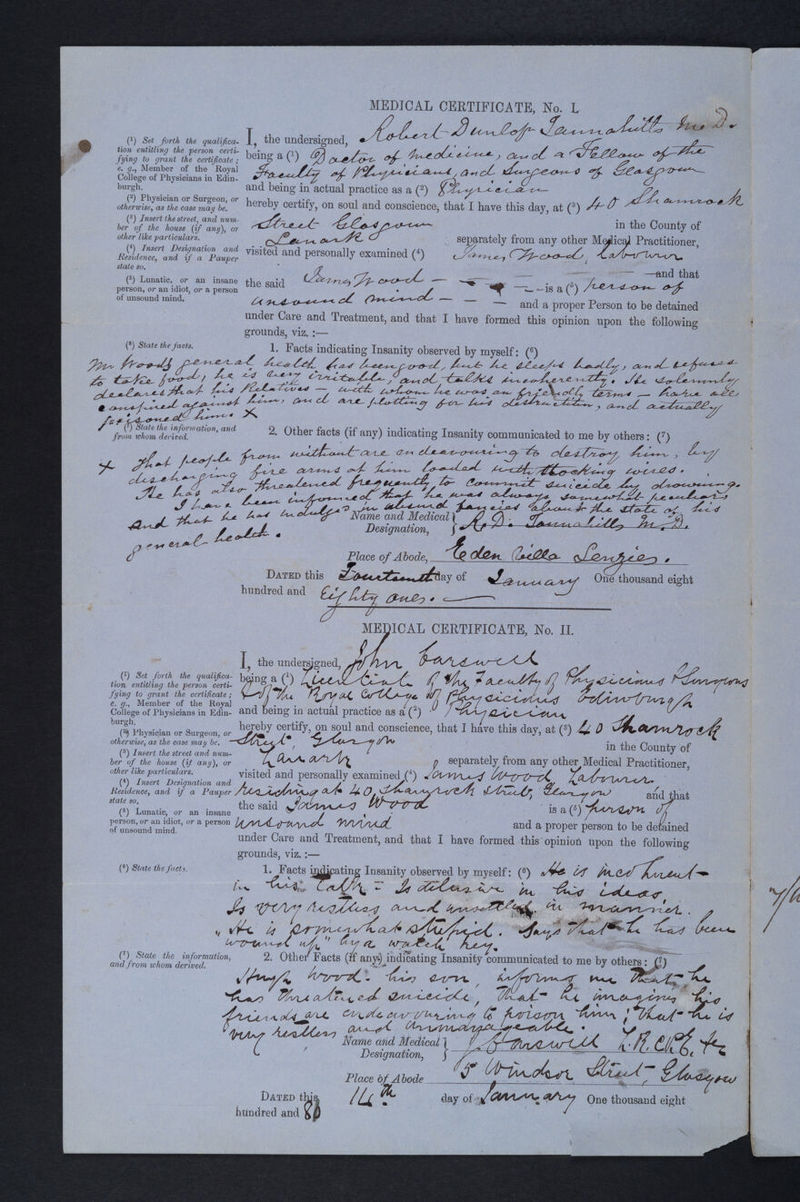 MEDICAL CERTIFICATE, No. I.
(1) Set forth the qualifica-
tion entitling the person certi-
fying to grant the certificate;
e. g., Member of the Royal
College of Physicians in Edin-
burgh.
(2) Physician or Surgeon, or
otherwise, as the case may be.
(3) Insert the street, and num-
ber of the house (if any), or
other like particulars.
(4) Insert Designation and
Residence, and if a Pauper
state so.
(5) Lunatic, or an insane
person, or an idiot, or a person
of unsound mind.
I, the undersigned, Robert Dunlop Tannahill M.D.
being a (1) Doctor of Medicine, and a Fellow of the
Faculty of Physicians, and Surgeons of Glasgow
and being in actual practice as a (2) Physician
hereby certify, on soul and conscience, that I have this day, at (3) 40 Shamrock
Street Glasgow in the County of
Lanark separately from any other Medical Practitioner,
visited and personally examined (4) James Wood, Labourer
and that
the said James Wood is a (5) person of
unsound mind and a proper Person to be detained
under Care and Treatment, and that I have formed this opinion upon the following
grounds, viz. :—
(6) State the facts.
1. Facts indicating Insanity observed by myself: (6)
Mr Wood's general health has been good, but he sleeps badly, and refuses
to take food, he is very irritable, and talks incoherently. He solemnly
declares that his Relatives — with whom he was on friendly terms — have all
conspired against him, and are plotting for his destruction, and actually
poisoned him. X
(7) State the information, and
from whom derived.
2. Other facts (if any) indicating Insanity communicated to me by others: (7)
X That people from without are endeavouring to destroy him, by
discharging fire arms at him loaded with wires.
He has also threatened frequently to commit suicide by drowning.
I have been informed that he was always somewhat peculiar
And that he has indulged in absurd fancies about the state of his
general health.
Name and Medical
Designation, R. D. Tannahill M.D.
Place of Abode, Eden Villa Lenzie.
DATED this Fourteenth day of January One thousand eight
hundred and Eighty one.
MEDICAL CERTIFICATE, No. II.
(1) Set forth the qualifica-
tion entitling the person certi-
fying to grant the certificate;
e. g., Member of the Royal
College of Physicians in Edin-
burgh.
(2) Physician or Surgeon, or
otherwise, as the case may be.
(3) Insert the street and num-
ber of the house (if any), or
other like particulars.
(4) Insert Designation and
Residence, and if a Pauper
state so.
(5) Lunatic, or an insane
person, or an idiot, or a person
of unsound mind.
I, the undersigned, John Carswell
being a (1) Licentiate of the Faculty of Physicians & Surgeons
& of the Royal College of Physicians Edinburgh
and being in actual practice as a (2) Physician
hereby certify, on soul and conscience, that I have this day, at (3) 40 Shamrock
Street, Glasgow in the County of
Lanark separately from any other Medical Practitioner,
visited and personally examined (4) James Wood Labourer
residing at 40, Shamrock Street, Glasgow and that
the said James Wood is a (5) person of
unsound mind and a proper person to be detained
under Care and Treatment, and that I have formed this opinion upon the following
grounds, viz. :—
(6) State the facts.
1. Facts indicating Insanity observed by myself: (6) He is incoherent
in his talk - Is delusive in his ideas,
Is very restless and unsettled in manner.
He is somewhat stupid. Says that he has been
"wound up" by a watch key.
(7) State the information,
and from whom derived.
2. Other Facts (if any) indicating Insanity communicated to me by others: (7)
Hugh Wood. his son, informs me that he
has threatened suicide, that he imagines his
friends are endeavouring to poison him; that he is
very restless and unmanageable.
Name and Medical
Designation, J. Carswell L.R.C.P.E. &c
Place of Abode 5 Windsor Street, Glasgow
DATED this 14th day of January One thousand eight
hundred and